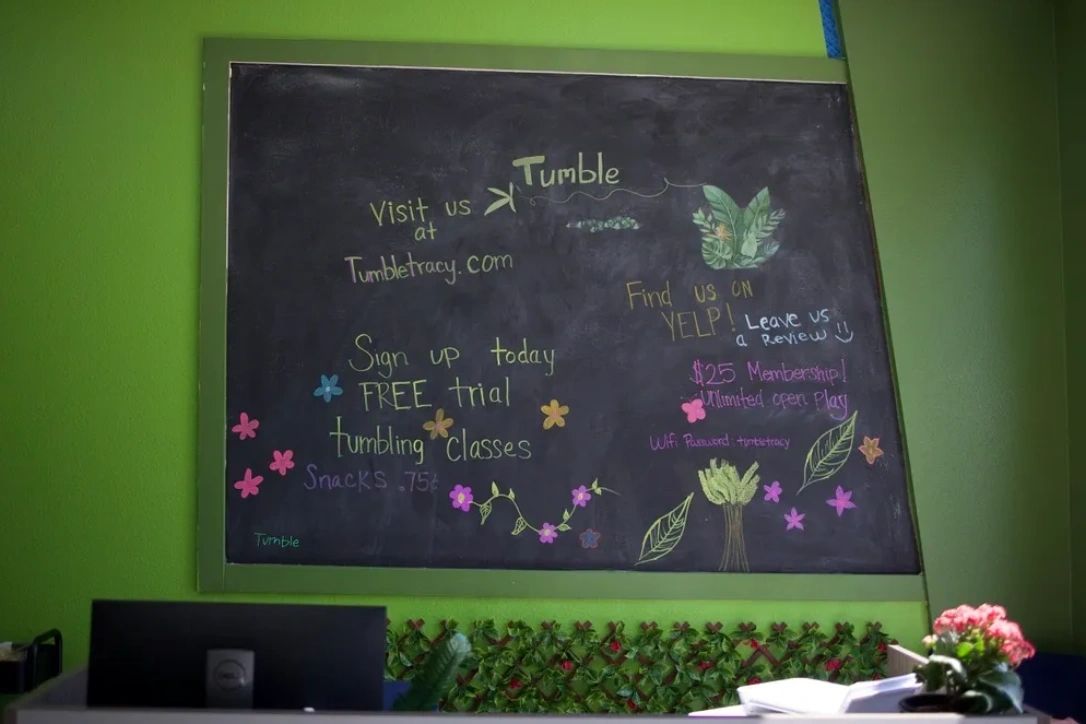 Tumble
Visit us
at
Tumbletracy.com
Find us on
YELP!
Leave us
a Review
Sign up today
FREE trial
tumbling Classes
Snacks .75¢
$25 Membership!
Unlimited open play
Wifi Password: tumbletracy
Tumble
DELL